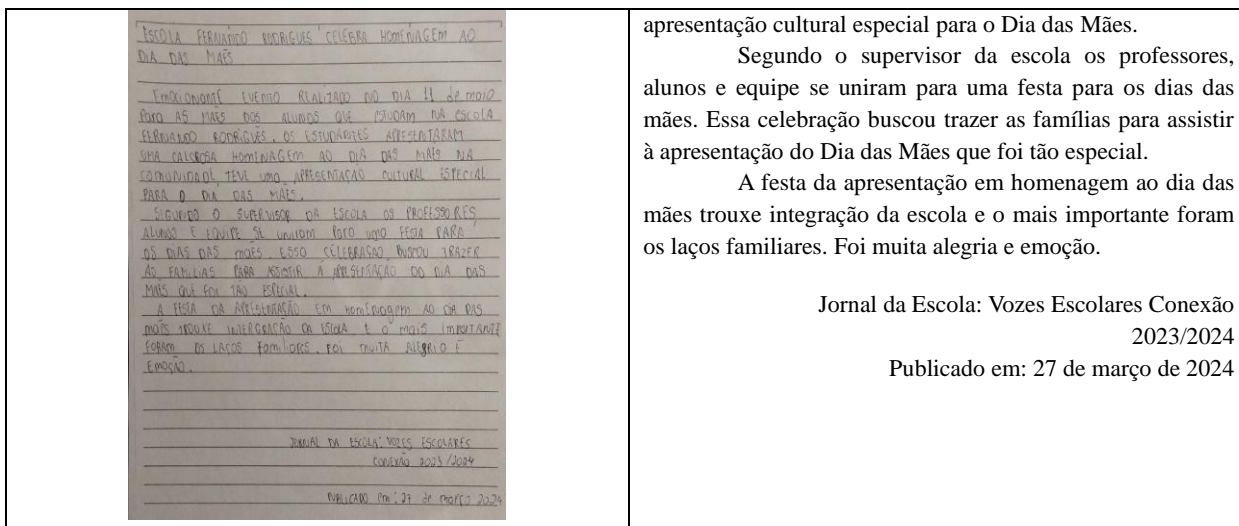 ESCOLA FERNANDO RODRIGUES CELEBRA HOMENAGEM AO
DIA DAS MÃES
EMOCIONANTE EVENTO REALIZADO NO DIA 11 de maio
Para AS MÃES DOS ALUNOS QUE ESTUDAM NA ESCOLA
FERNANDO RODRIGUES. OS ESTUDANTES APRESENTARAM
UMA CALOROSA HOMENAGEM AO DIA DAS MÃES NA
COMUNIDADE, TEVE uma APRESENTAÇÃO CULTURAL ESPECIAL
PARA O DIA DAS MÃES.
SEGUNDO O SUPERVISOR DA ESCOLA OS PROFESSORES,
ALUNOS E EQUIPE SE uniram Para uma FESTA PARA
OS DIAS DAS mães. ESSA CELEBRAÇÃO BUSCOU TRAZER
AS FAMILIAS PARA ASSISTIR A APRESENTAÇÃO DO DIA DAS
MÃES QUE FOI TÃO ESPECIAL.
A FESTA DA APRESENTAÇÃO Em homenagem AO DIA DAS
mães TROUXE INTERGRAÇÃO DA ESCOLA E O mais IMPORTANTE
FORAM OS LAÇOS familiares. FOI muita ALEGRIA E
EMOÇÃO.
JORNAL DA ESCOLA: VOZES ESCOLARES
CONEXÃO 2023/2024
PUBLICADO em: 27 de março 2024
apresentação cultural especial para o Dia das Mães.
Segundo o supervisor da escola os professores,
alunos e equipe se uniram para uma festa para os dias das
mães. Essa celebração buscou trazer as famílias para assistir
à apresentação do Dia das Mães que foi tão especial.
A festa da apresentação em homenagem ao dia das
mães trouxe integração da escola e o mais importante foram
os laços familiares. Foi muita alegria e emoção.
Jornal da Escola: Vozes Escolares Conexão
2023/2024
Publicado em: 27 de março de 2024